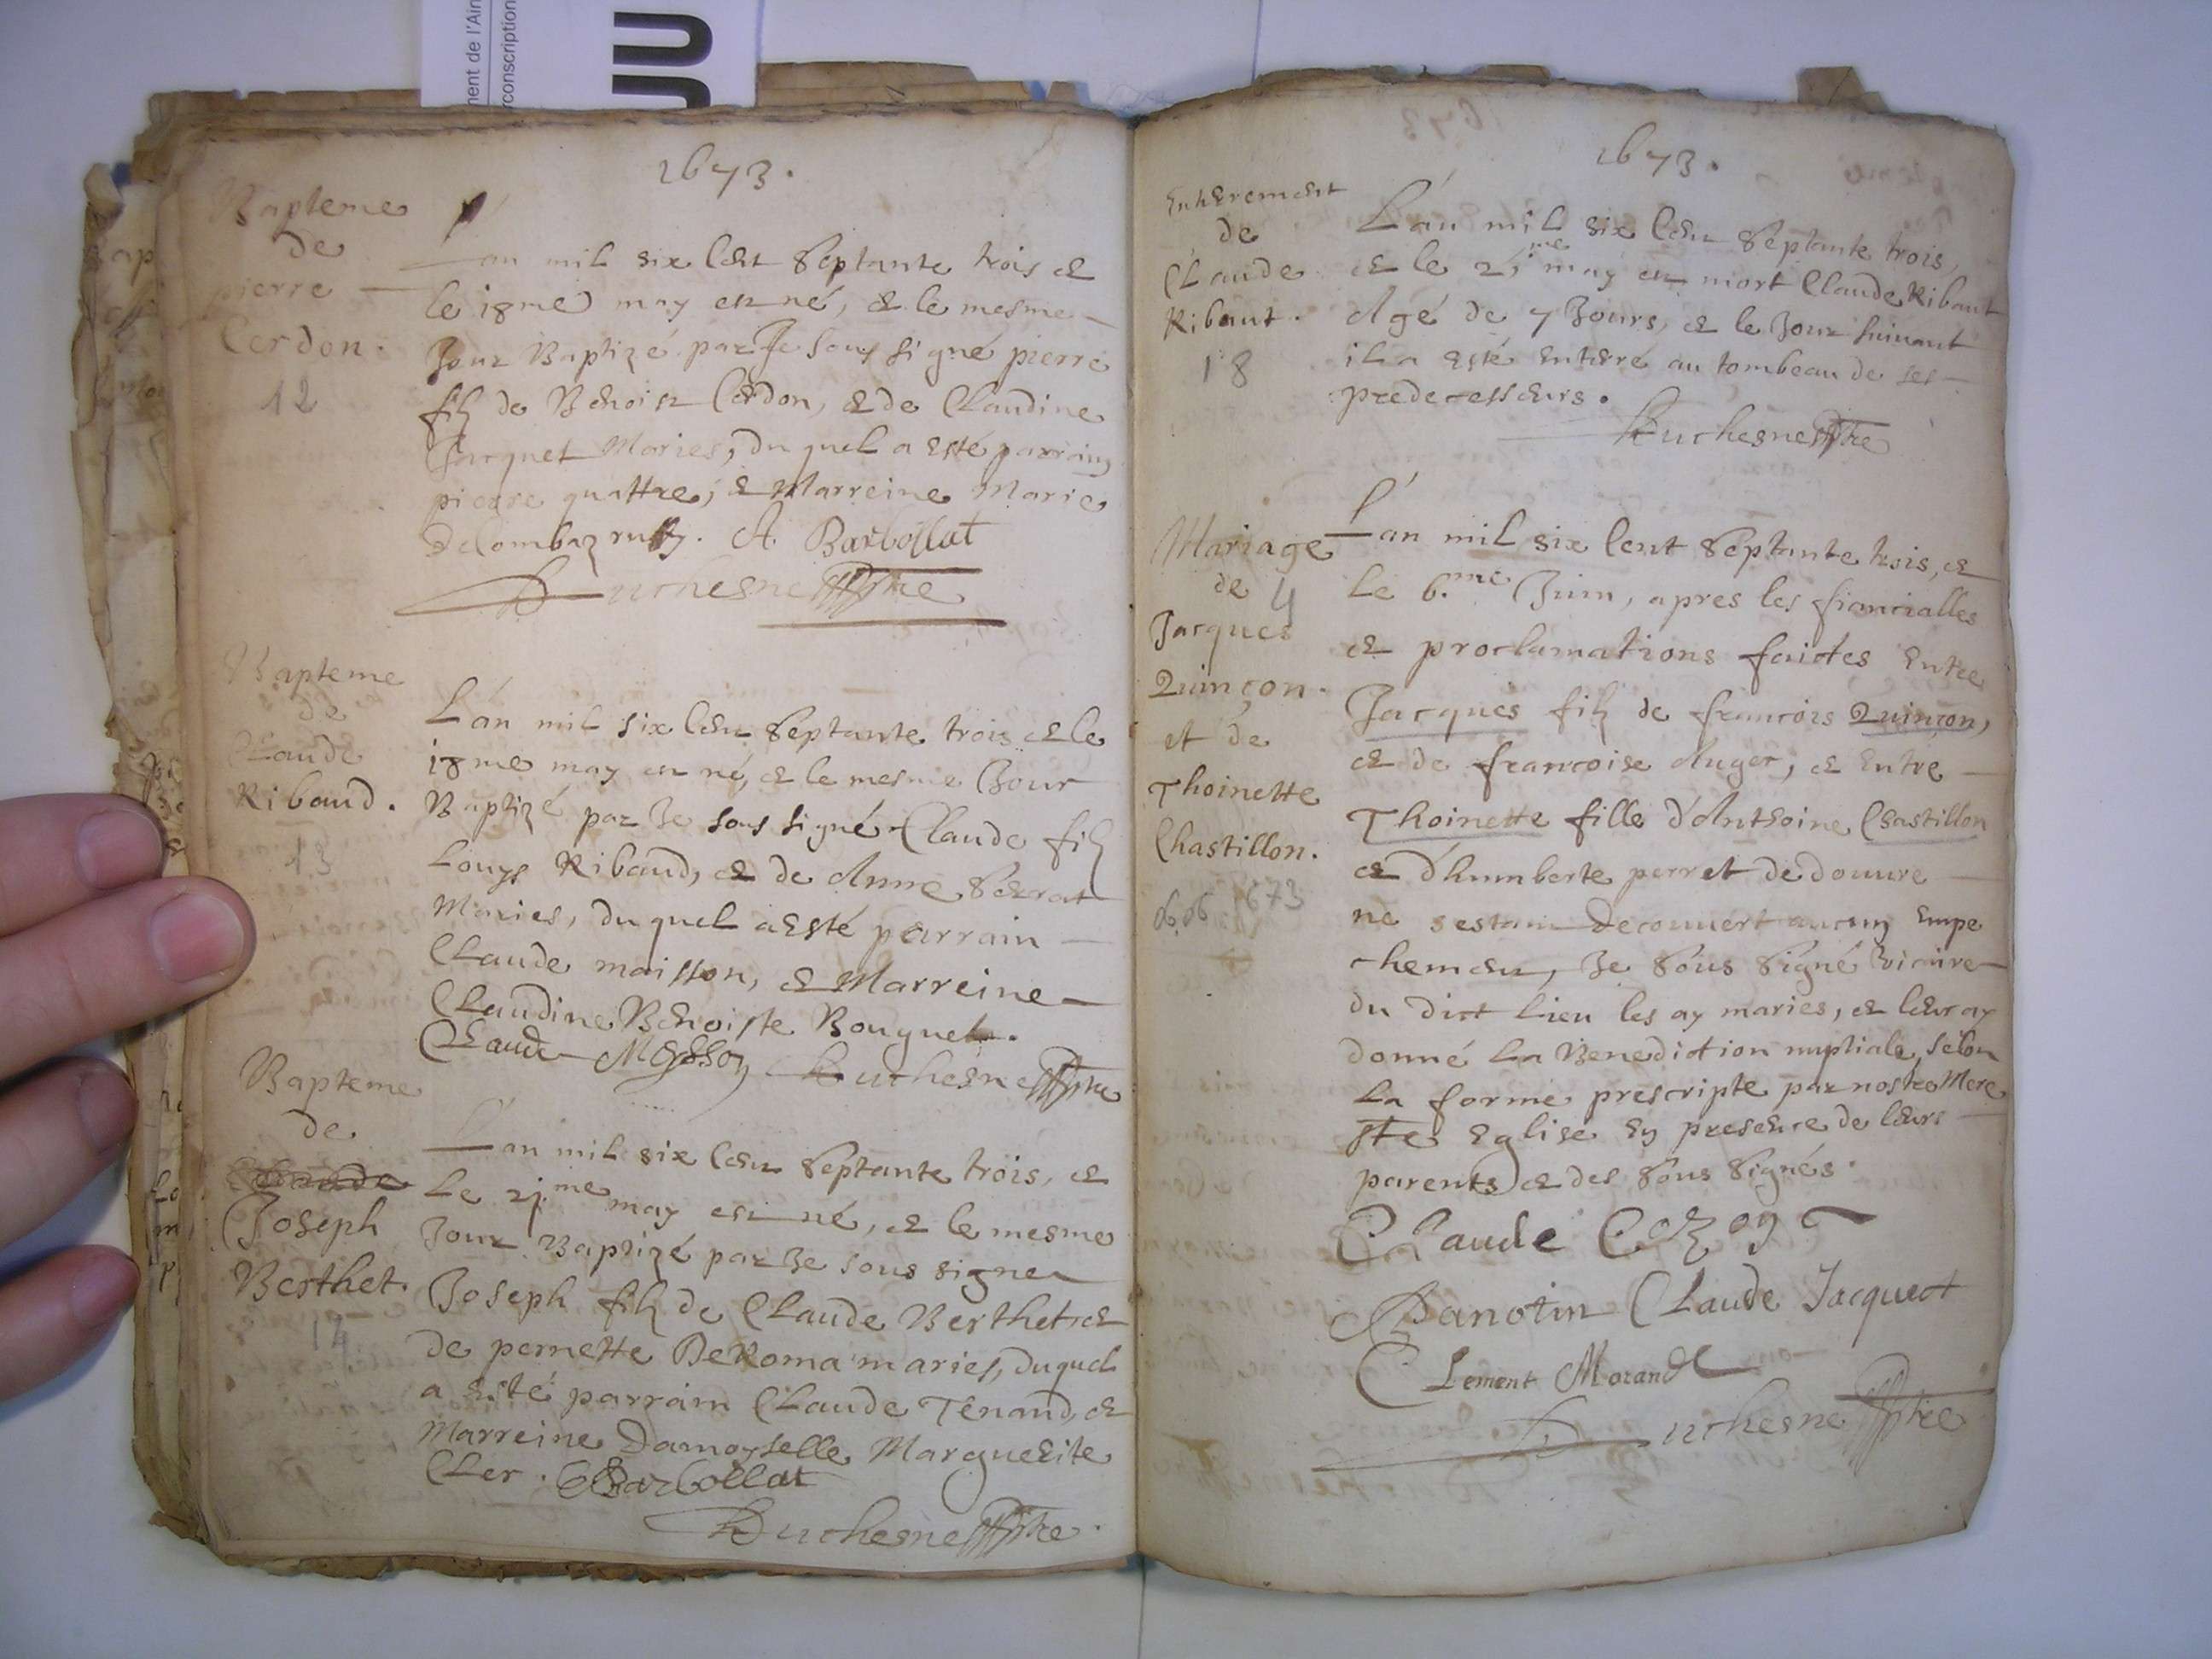 ment de l'Ain
rconscription
JU
1673.
Bapteme
de
pierre
Cerdon.
12
L'an mil six cent septante trois et
le 18me may est né, et le mesme
Jour Baptizé par Je sous signé pierre
filz de Benoist Cerdon, et de Claudine
Jacquet Maries, du quel a esté parrain
pierre quattre, et Marreine Marie
A. Barbollat
Duchesne Pbtre
Bapteme
de
Claude
Ribaud.
13
L'an mil six cent septante trois et le
18me may est né, et le mesme Jour
Baptizé par Je sous signé Claude filz
Louys Ribaud, et de Anne Serrat
Maries, du quel a esté parrain
Claude maisson, et Marreine
Claudine Benoiste Bouquet.
Claude Duchesne Pbtre
Bapteme
de
Joseph
Berthet.
14
L'an mil six cent septante trois, et
Le 21.me may est né, et le mesme
Jour Baptizé par Je sous signe
Joseph filz de Claude Berthet, et
de pernette DeRoma maries, du quel
a esté parrain Claude Tenand, et
Marreine Damoyselle Marguerite
Cler. Barbollat
Duchesne Pbtre.
1673.
Enterement
de
Claude
Ribaut.
18
L'an mil six cent septante trois,
et le 25me may est mort Claude Ribaut
Agé de 7 Jours, et le Jour suivant
il a esté enterré au tombeau de ses
predecesseurs.
Duchesne Pbtre
Mariage
de 4
Jacques
Quinçon.
et de
Thoinette
Chastillon.
06.06 1673
L'an mil six cent septante trois, et
Le 6.me Juin, apres les fiancialles
et proclamations faictes Entre
Jacques filz de francois Quinçon,
et de francoise Auger, et Entre
Thoinette fille d'Anthoine Chastillon
et d'humberte perret de douure
ne sestant decouvert aucun Empe
chement, Je sous signé vicaire
du dict Lieu les ay maries, et leur ay
donné La Benediction nuptiale, selon
La forme prescripte par nostre Mere
ste Eglise En presence de leurs
parents et des sous signés.
Claude
Panotin Claude Jacquect
Clement Morand
Duchesne Pbtre